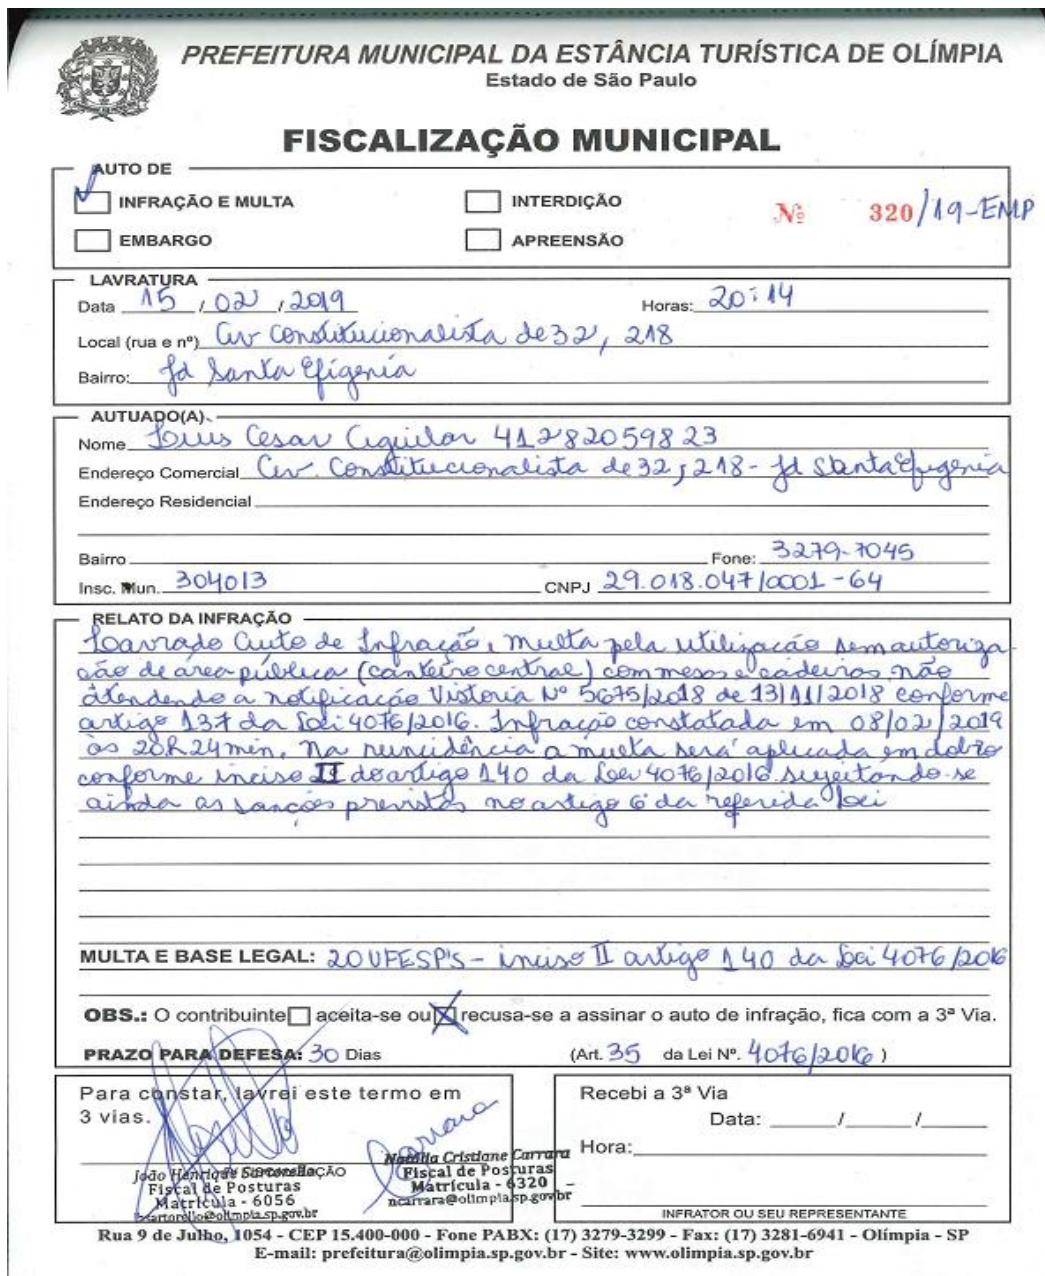 PREFEITURA MUNICIPAL DA ESTÂNCIA TURÍSTICA DE OLÍMPIA
Estado de São Paulo
FISCALIZAÇÃO MUNICIPAL
AUTO DE
INFRAÇÃO E MULTA INTERDIÇÃO
Nº 320/19-EMP
EMBARGO APREENSÃO
LAVRATURA
Data 15 / 02 / 2019 Horas: 20:14
Local (rua e nº) Av Constitucionalista de 32, 218
Bairro: Jd Santa Efigenia
AUTUADO(A)
Nome Luis Cesar Aguilar 41282059823
Endereço Comercial Av. Constitucionalista de 32, 218 - Jd Santa Efigenia
Endereço Residencial
Bairro Fone: 3279-7045
Insc. Mun. 304013 CNPJ 29.018.047/0001-64
RELATO DA INFRAÇÃO
Lavrado Auto de Infração e multa pela utilização sem autoriza
ção de área pública (canteiro central) com mesas e cadeiras não
atendendo a notificação Vistoria Nº 5675/2018 de 13/11/2018 conforme
artigo 137 da Lei 4076/2016. Infração constatada em 08/02/2019
às 20h24min. Na reincidência a multa será aplicada em dobro
conforme inciso II do artigo 140 da Lei 4076/2016 sujeitando-se
ainda as sanções previstas no artigo 6º da referida Lei
MULTA E BASE LEGAL: 20 UFESP'S - inciso II artigo 140 da Lei 4076/2016
OBS.: O contribuinte aceita-se ou recusa-se a assinar o auto de infração, fica com a 3ª Via.
PRAZO PARA DEFESA: 30 Dias (Art. 35 da Lei Nº. 4076/2016)
Para constar, lavrei este termo em
3 vias.
Carrara
João Henrique
Fiscal de Posturas
Matrícula - 6056
Natália Cristiane Carrara
Fiscal de Posturas
Matrícula - 6320
ncarrara@olimpia.sp.gov.br
Recebi a 3ª Via
Data: ____/____/____
Hora:
INFRATOR OU SEU REPRESENTANTE
Rua 9 de Julho, 1054 - CEP 15.400-000 - Fone PABX: (17) 3279-3299 - Fax: (17) 3281-6941 - Olímpia - SP
E-mail: prefeitura@olimpia.sp.gov.br - Site: www.olimpia.sp.gov.br